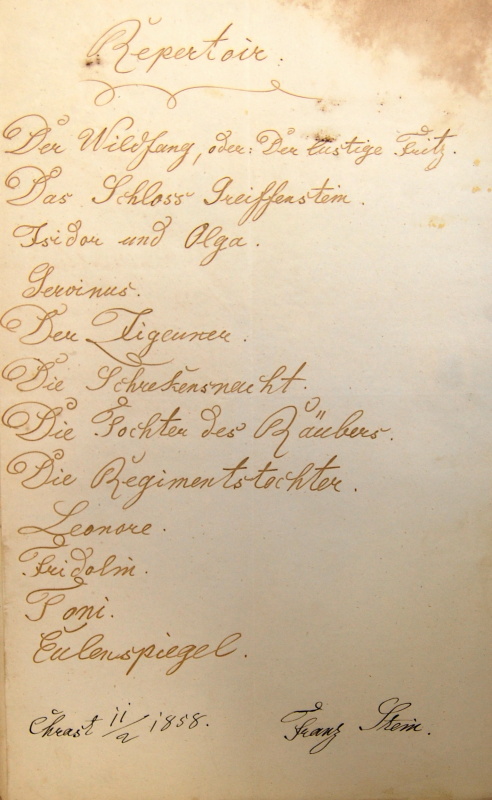 Repertoir.
Der Wildfang, oder: Der lustige Fritz.
Das Schloss Greiffenstein.
Isidor und Olga.
Servinus.
Der Zigeuner.
Die Schrekensnacht.
Die Tochter des Räubers.
Die Regimentstochter.
Leonore.
Fridolin.
Toni.
Eulenspiegel.
Chrast 11/2 1858. Franz Stein.